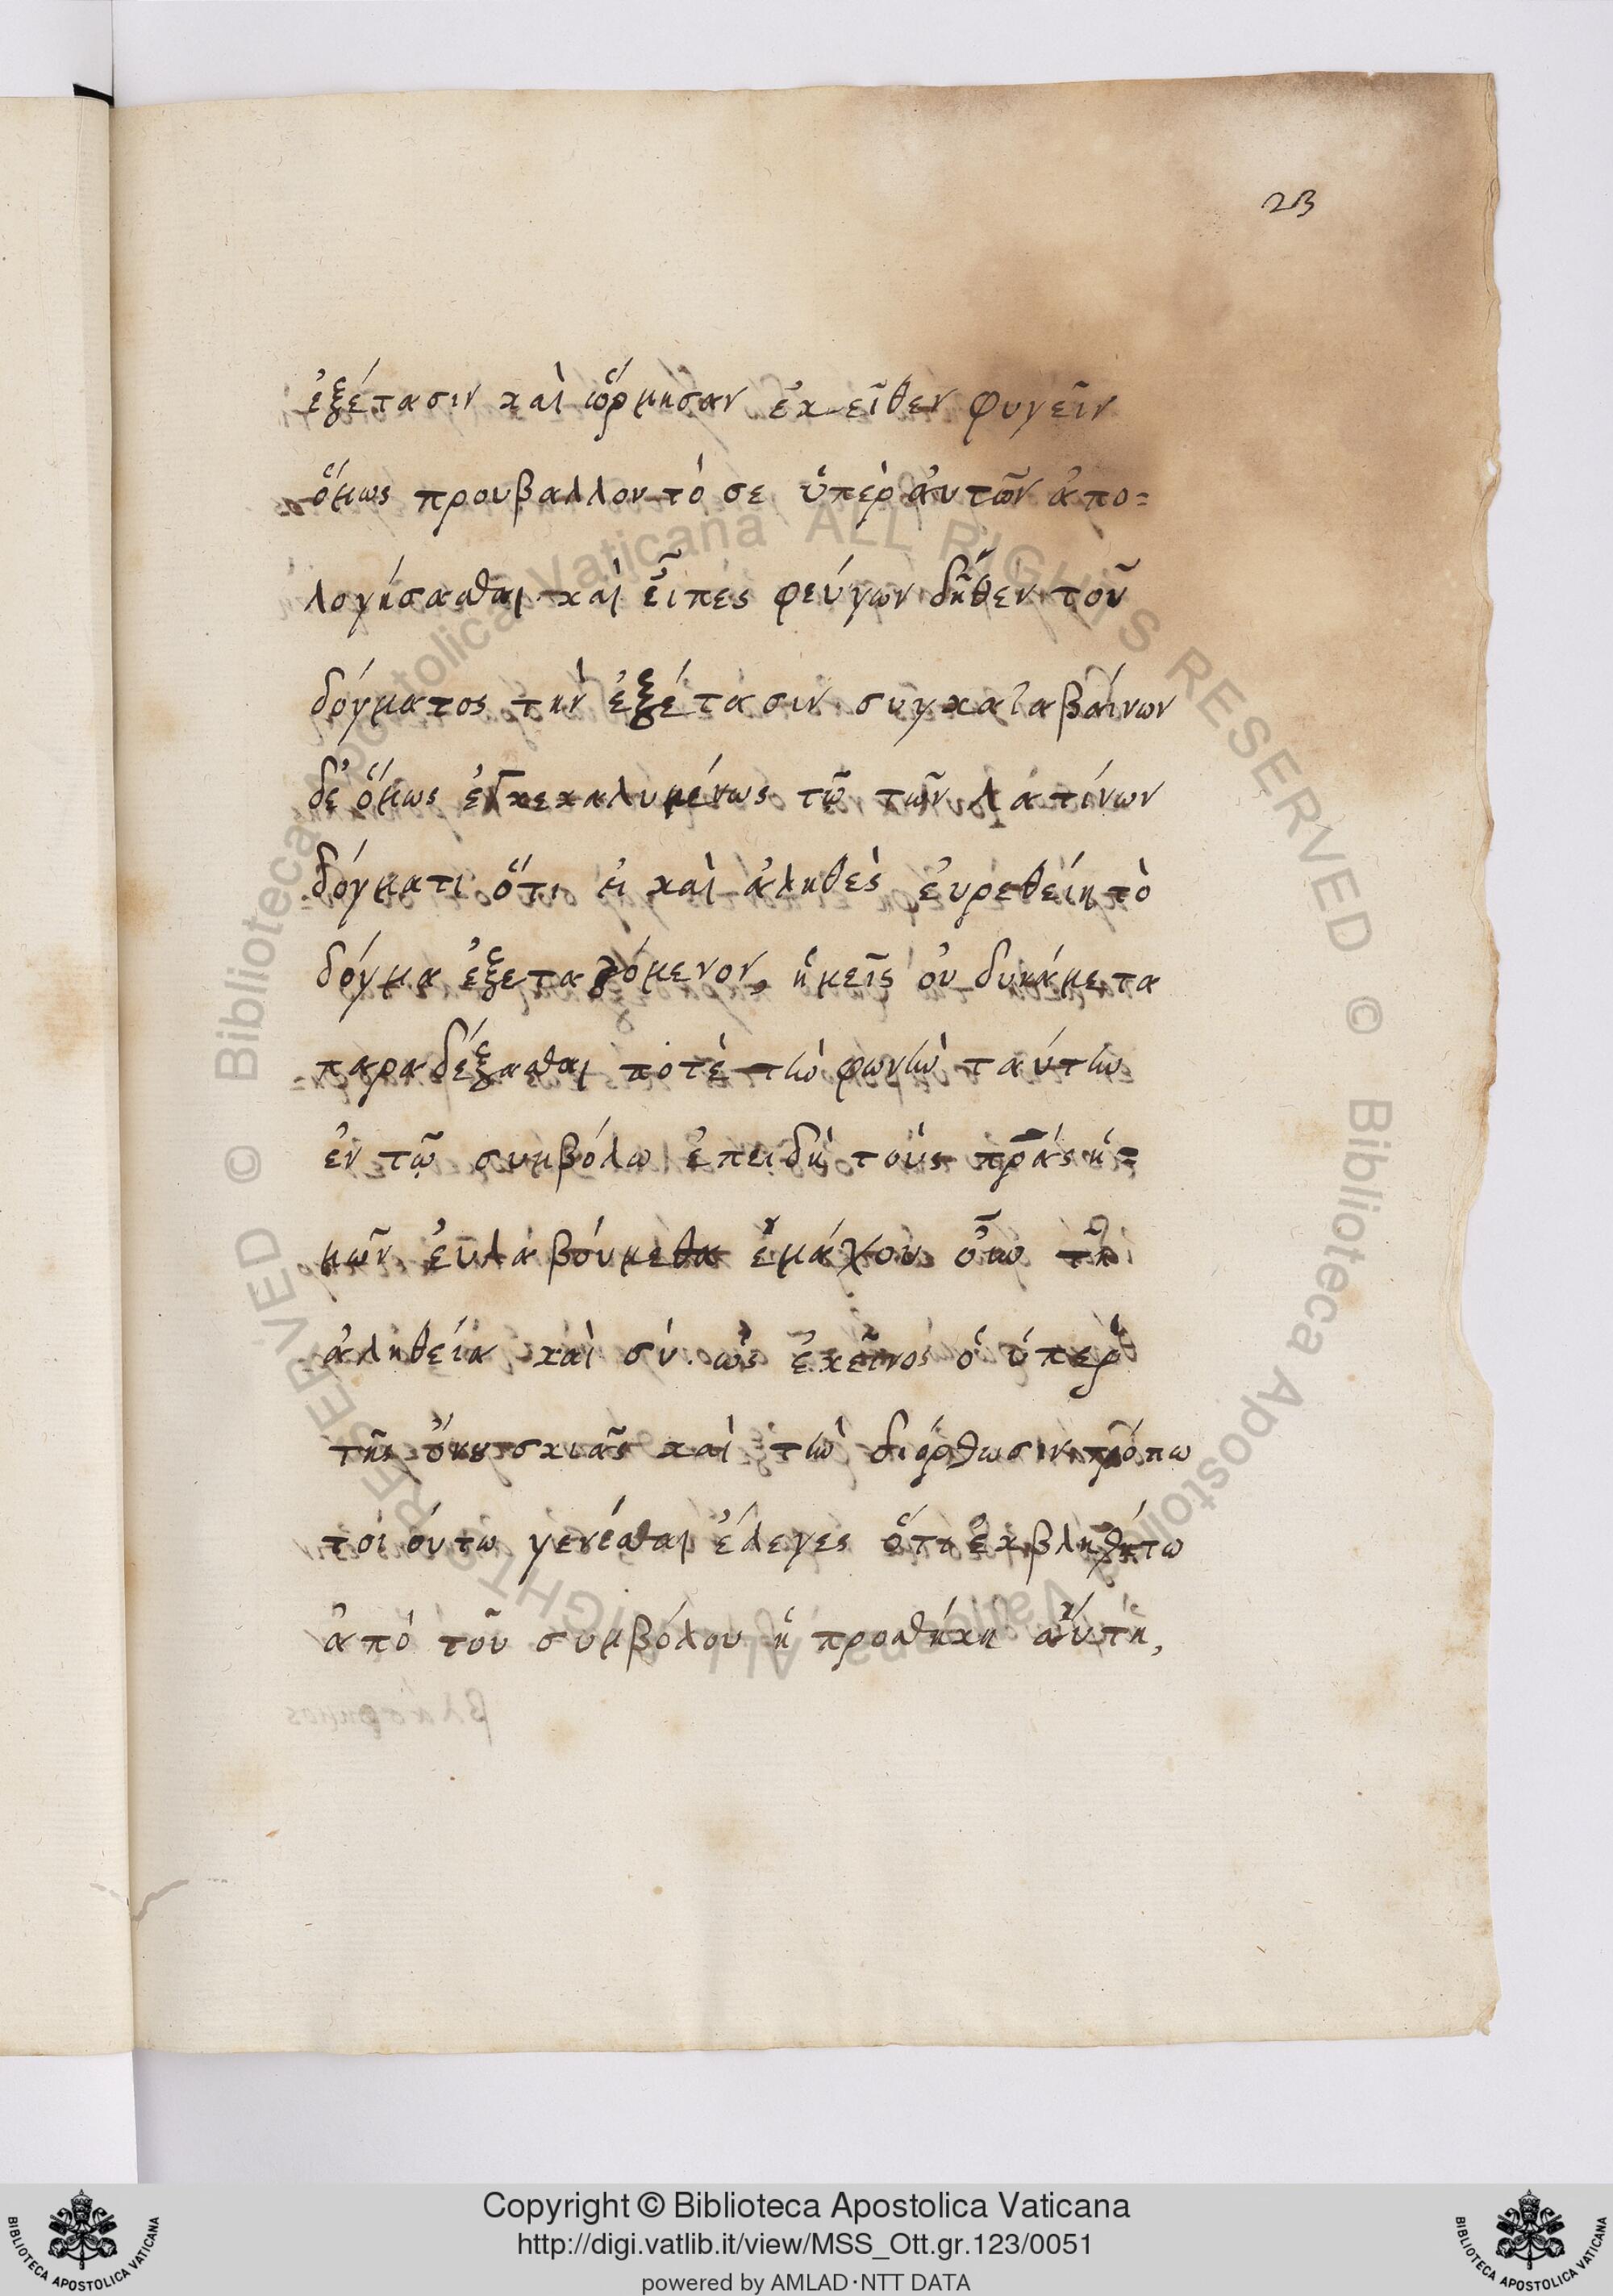 23
ἐξέτασιν καὶ ὥρμησαν ἐκεῖθεν φυγεῖν
ὅμως προυβάλλοντό σε ὑπὲρ ἀυτῶν ἀπο=
λογήσασθαι καὶ εἶπες φεύγων δῆθεν τοῦ
δόγματος τὴν ἐξέτασιν συγκαταβαίνων
δὲ ὅμως ἐγκεκαλυμένως τῷ τῶν λατίνων
δόγματι ὅτι εἰ καὶ ἀληθὲς ἑυρεθείη τὸ
δόγμα ἐξεταζόμενον, ἡμεῖς οὐ δυνάμετα
παραδέξασθαι ποτὲ τὴν φωνὴν ταύτην
ἐν τῷ συμβόλω ἐπειδὴ τοὺς πρᾶς ἡ=
μῶν ἐυλαβούμεθα ἐμάχου οὕπω τῆ
ἀληθεία καὶ σύ. ὡς ἐκεῖνος ὁ ὑπὲρ
τῆς ὄνου σκιᾶς καὶ τὴν διόρθωσιν τρόπω
τοιούτω γενέσθαι ἔλεγες ὅτι ἐκβληθήτω
ἀπὸ τοῦ συμβόλου ἡ προσθήκη ἅυτη,
Copyright © Biblioteca Apostolica Vaticana
http://digi.vatlib.it/view/MSS_Ott.gr.123/0051
powered by AMLAD·NTT DATA
BIBLIOTECA APOSTOLICA VATICANA
BIBLIOTECA APOSTOLICA VATICANA
© Biblioteca Apostolica Vaticana ALL RIGHTS RESERVED
© Biblioteca Apostolica Vaticana ALL RIGHTS RESERVED